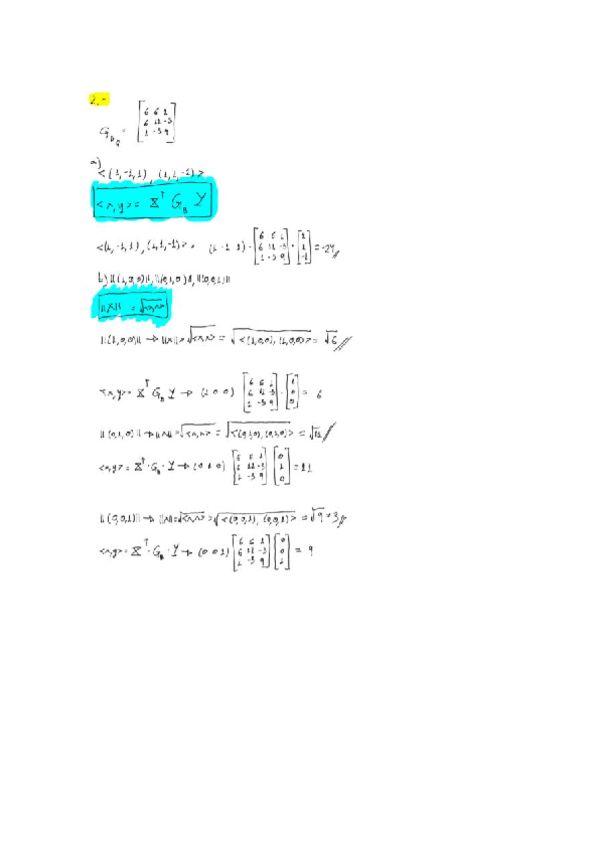 2.-
G_{B_Q} = [6 6 1; 6 11 -3; 1 -3 9]
a)
<(1,-1,1), (1,1,-1)>
<x,y> = X^T G_B Y
<(1,-1,1),(1,1,-1)> = (1 -1 1) · [6 6 1; 6 11 -3; 1 -3 9] · [1; 1; -1] = -24 //
b) ||(1,0,0)||, ||(0,1,0)||, ||(0,0,1)||
||x|| = √<x,x>
||(1,0,0)|| → ||x|| = √<x,x> = √<(1,0,0), (1,0,0)> = √6 //
<x,y> = X^T G_B Y → (1 0 0) [6 6 1; 6 11 -3; 1 -3 9] · [1; 0; 0] = 6
||(0,1,0)|| → ||x|| = √<x,x> = √<(0,1,0), (0,1,0)> = √11 //
<x,y> = X^T · G_B · Y → (0 1 0) [6 6 1; 6 11 -3; 1 -3 9] [0; 1; 0] = 11
||(0,0,1)|| → ||x|| = √<x,x> = √<(0,0,1), (0,0,1)> = √9 = 3 //
<x,y> = X^T · G_B · Y → (0 0 1) [6 6 1; 6 11 -3; 1 -3 9] [0; 0; 1] = 9